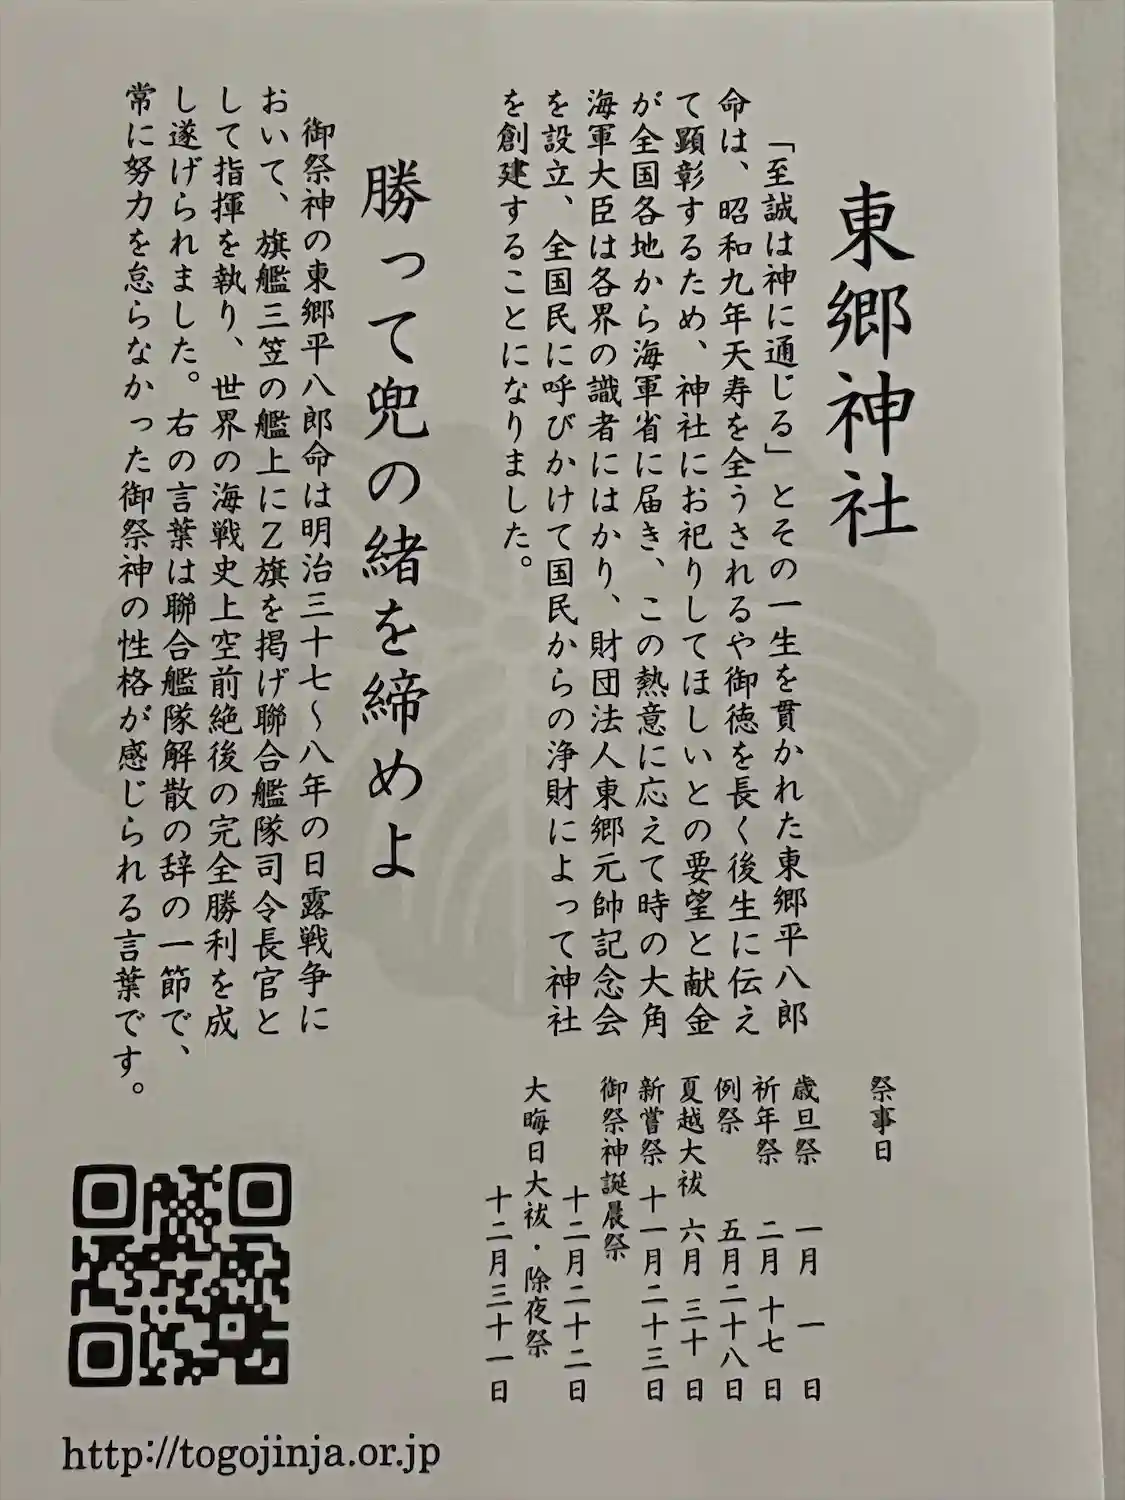 東郷神社
「至誠は神に通じる」とその一生を貫かれた東郷平八郎
命は、昭和九年天寿を全うされるや御徳を長く後生に伝え
て顕彰するため、神社にお祀りしてほしいとの要望と献金
が全国各地から海軍省に届き、この熱意に応えて時の大角
海軍大臣は各界の識者にはかり、財団法人東郷元帥記念会
を設立、全国民に呼びかけて国民からの浄財によって神社
を創建することになりました。
勝って兜の緒を締めよ
御祭神の東郷平八郎命は明治三十七〜八年の日露戦争に
おいて、旗艦三笠の艦上にZ旗を掲げ聯合艦隊司令長官と
して指揮を執り、世界の海戦史上空前絶後の完全勝利を成
し遂げられました。右の言葉は聯合艦隊解散の辞の一節で、
常に努力を怠らなかった御祭神の性格が感じられる言葉です。
祭事日
歳旦祭 一月 一 日
祈年祭 二月 十七 日
例祭 五月二十八日
夏越大祓 六月 三十 日
新嘗祭 十一月二十三日
御祭神誕晨祭
十二月二十二日
大晦日大祓・除夜祭
十二月三十一日
http://togojinja.or.jp